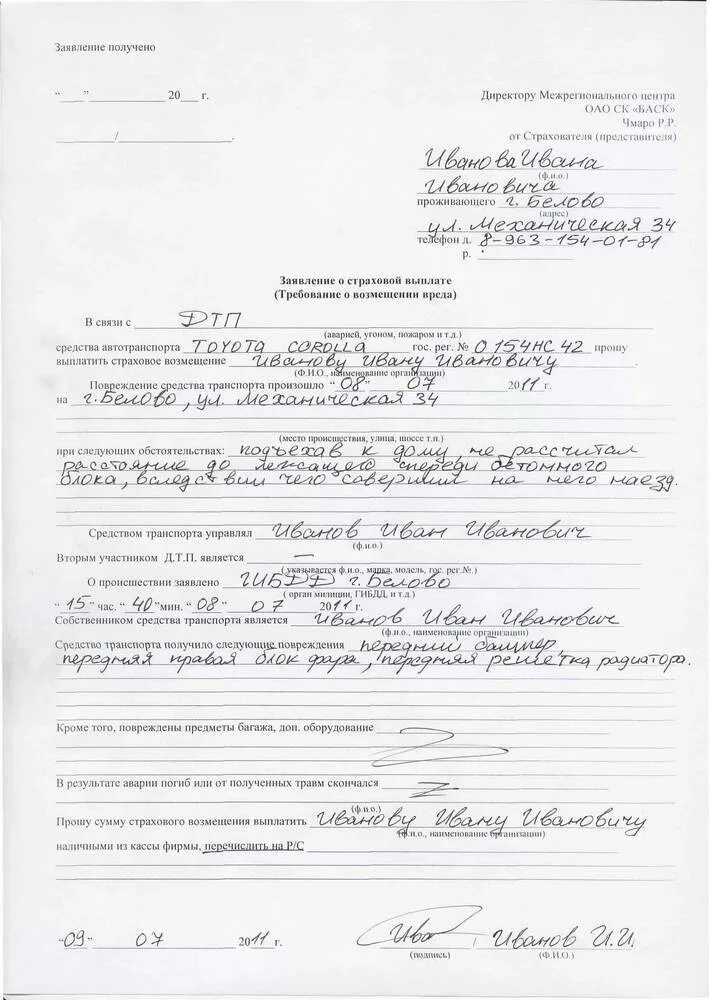 Заявление получено
"___"____________ 20___ г.
Директору Межрегионального центра
ОАО СК «БАСК»
Чмаро Р.Р.
________/________________.
от Страхователя (представителя)
Иванова Ивана
(ф.и.о.)
Ивановича
проживающего г. Белово
(адрес)
ул. Механическая 34
телефон д. 8-963-154-01-81
р.
Заявление о страховой выплате
(Требование о возмещении вреда)
В связи с ДТП
(аварией, угоном, пожаром и т.д.)
средства автотранспорта TOYOTA COROLLA гос. рег. № О 154 НС 42 прошу
выплатить страховое возмещение Иванову Ивану Ивановичу.
(Ф.И.О., наименование организации)
Повреждение средства транспорта произошло "08" 07 2011 г.
на г. Белово, ул. Механическая 34
(место происшествия, улица, шоссе т.п.)
при следующих обстоятельствах: подъехав к дому, не рассчитал
расстояние до лежащего спереди бетонного
блока, вследствии чего совершил на него наезд.
Средством транспорта управлял Иванов Иван Иванович
(ф.и.о.)
Вторым участником Д.Т.П. является —
(указывается ф.и.о., марка, модель, гос. рег.№.)
О происшествии заявлено ГИБДД г. Белово
(орган милиции, ГИБДД, и т.д.)
"15" час. "40" мин. "08" 07 2011 г.
Собственником средства транспорта является Иванов Иван Иванович
(ф.и.о., наименование организации)
Средство транспорта получило следующие повреждения передний бампер,
передняя правая блок фара, передняя решетка радиатора.
Кроме того, повреждены предметы багажа, доп. оборудование
В результате аварии погиб или от полученных травм скончался
(ф.и.о.)
Прошу сумму страхового возмещения выплатить Иванову Ивану Ивановичу
(ф.и.о., наименование организации)
наличными из кассы фирмы, перечислить на Р/С
"09" 07 2011 г. Ива Иванов И.И.
(подпись) (Ф.И.О.)